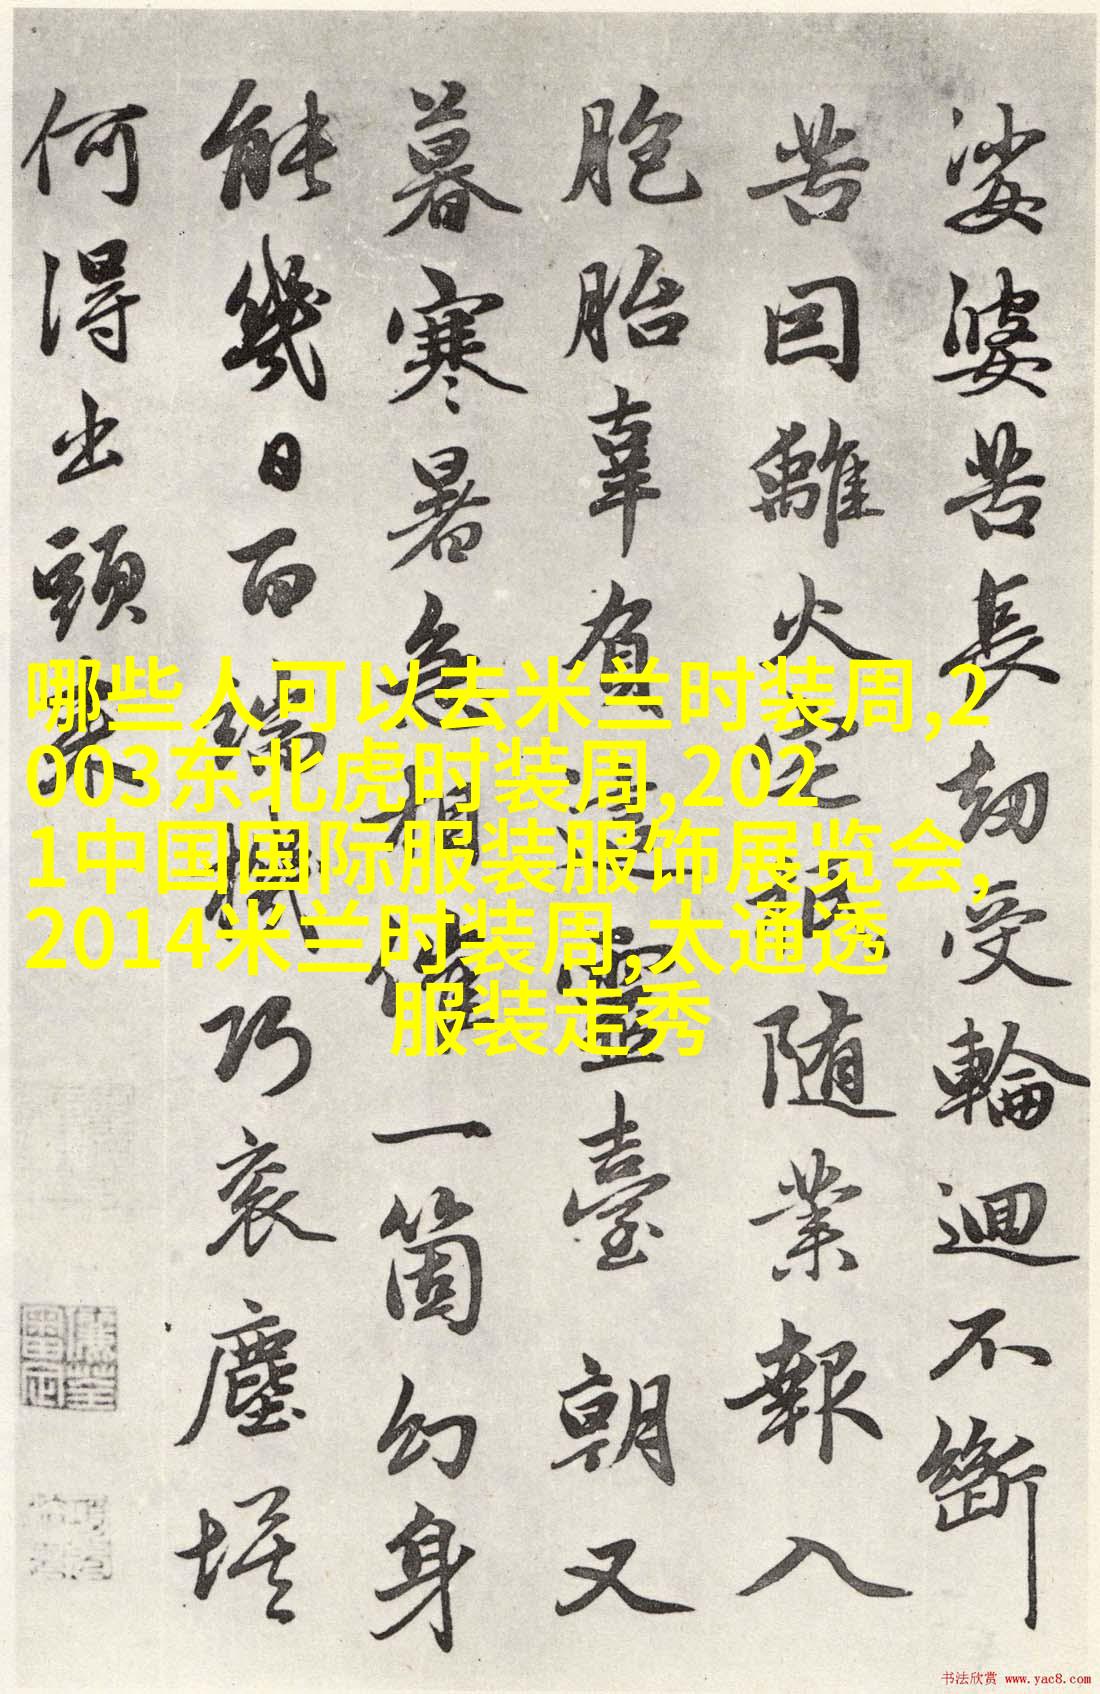 娑婆苦長劫受輪迴不斷
苦因離火宅祇随業報入
胞胎辜負這靈臺朝又
暮寒暑急相催一箇幻身
能幾日百端機巧衮塵埃
何得出頭來
哪些人可以去米兰时装周,2
003东北虎时装周,202
1中国国际服装服饰展览会,
2014米兰时装周,太通透
服装走秀
书法欣赏 www.yac8.com